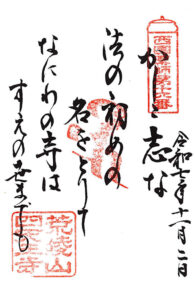 西国薬師第十六番
かしこ志な
令和七年十一月二日
法の初めの
名をとりて
なにわの寺は
すえの世までも
荒陵山
四天王寺